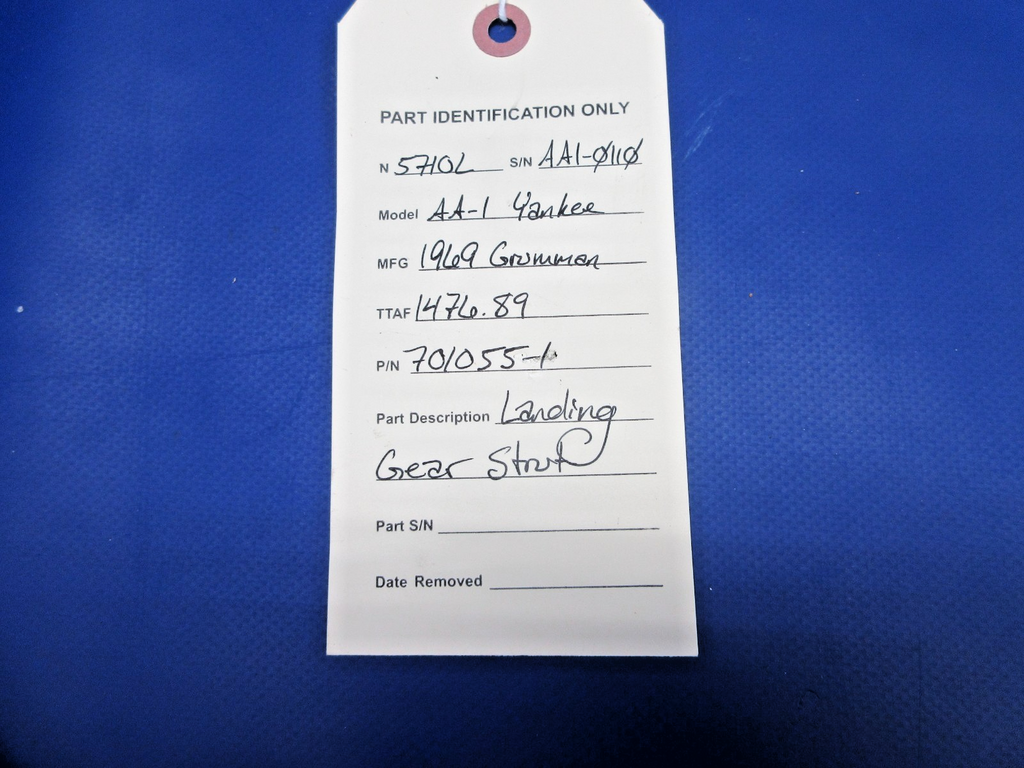 PART IDENTIFICATION ONLY
N 5710L S/N AA1-0110
Model AA-1 Yankee
MFG 1969 Grumman
TTAF 1476.89
P/N 701055-1
Part Description Landing
Gear Strut
Part S/N
Date Removed